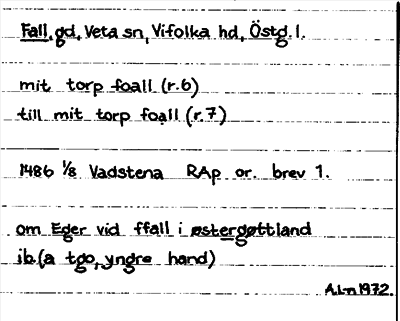 Fall, gd, Veta sn, Vifolka hd, Östg. l.
mit torp foall (r. 6)
till mit torp foall (r. 7)
1486 1/8 Vadstena RAp or. brev 1.
om Eger vid ffall i østergøttland
ib. (a tgo, yngre hand)
A.L-n 1972.